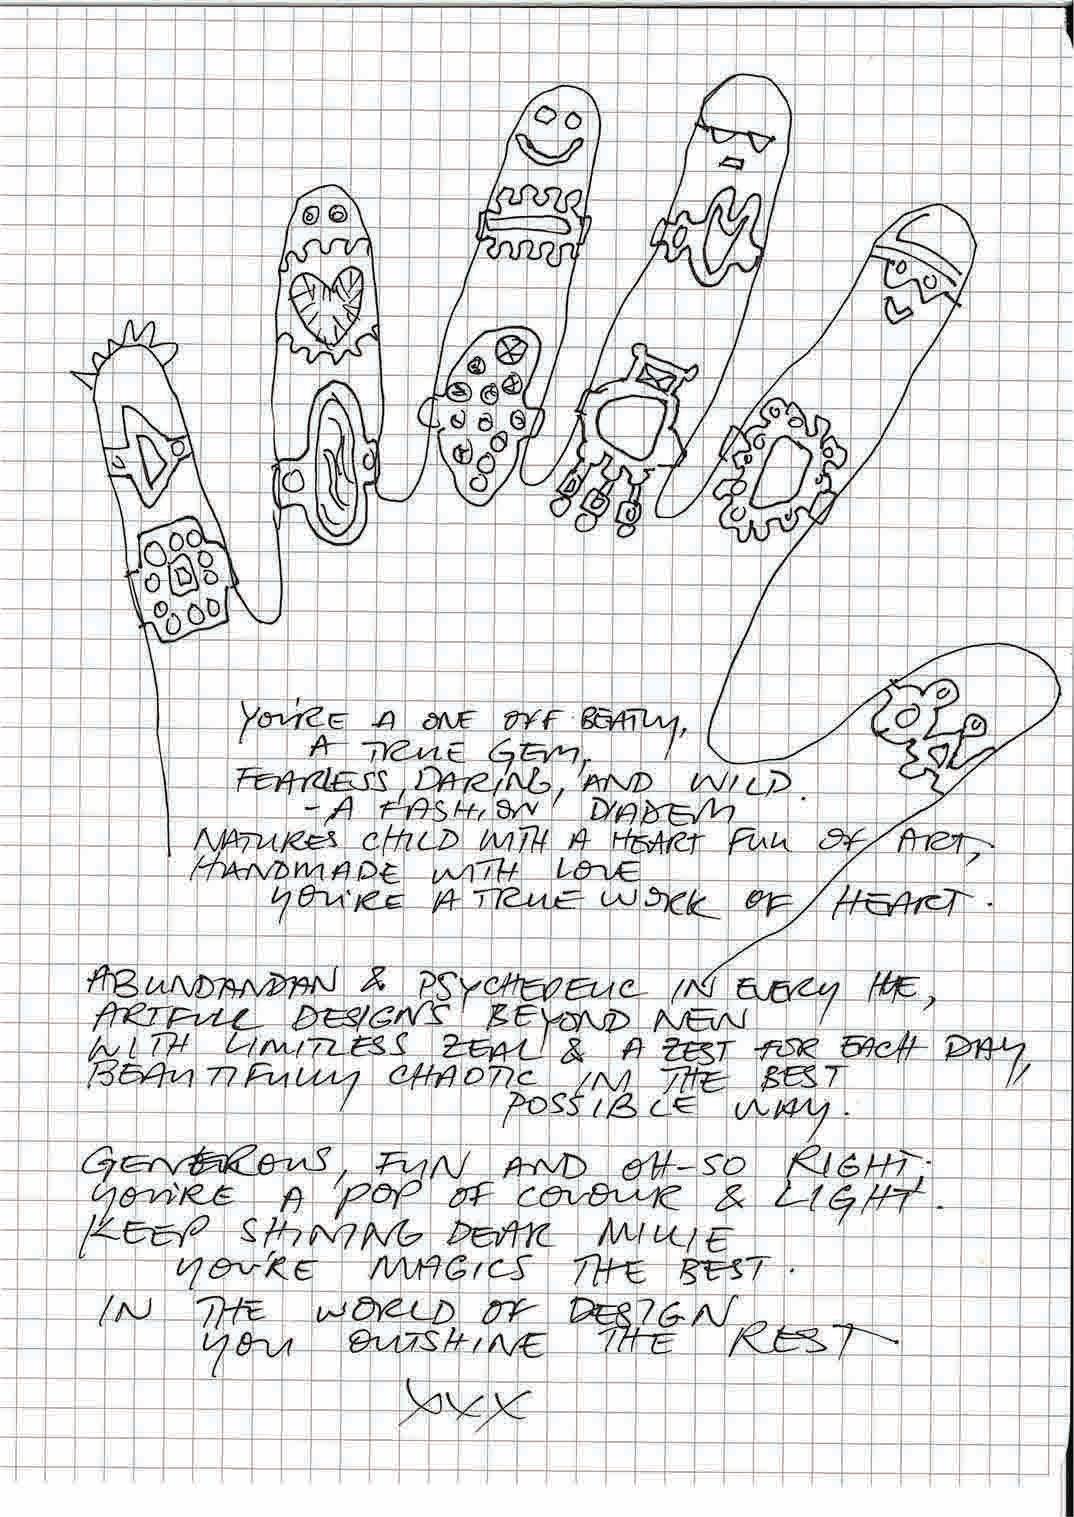 YOU'RE A ONE OFF BEATUY,
A TRUE GEM,
FEARLESS, DARING, AND WILD.
- A FASHION DIADEM
NATURES CHILD WITH A HEART FULL OF ART,
HANDMADE WITH LOVE
YOU'RE A TRUE WORK OF HEART.
ABUNDANDAN & PSYCHEDELIC IN EVERY HUE,
ARTFULL DESIGNS BEYOND NEW
WITH LIMITLESS ZEAL & A ZEST FOR EACH DAY,
BEAUTIFULLY CHAOTIC IN THE BEST
POSSIBLE WAY.
GENEROUS, FUN AND OH-SO RIGHT,
YOU'RE A POP OF COLOUR & LIGHT.
KEEP SHINING DEAR MILLIE
YOU'RE MAGICS THE BEST.
IN THE WORLD OF DESIGN
YOU OUTSHINE THE REST
XXX